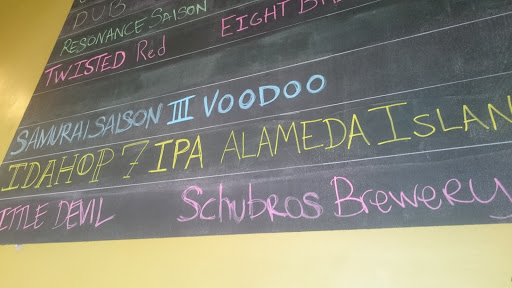 DUB
RESONANCE SAISON
TWISTED Red EIGHT
SAMURAI SAISON III VOODOO
IDAHOP 7 IPA ALAMEDA ISLAN
ITTLE DEVIL Schubros Brewery